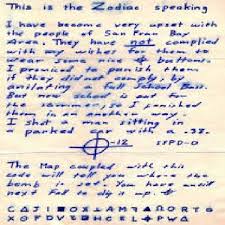 This is the Zodiac speaking
I have become very upset with
the people of San Fran Bay
Area. They have not complied
with my wishes for them to
wear some nice ⌖ buttons.
I promiced to punish them
if they did not comply, by
anilating a full School Buss.
But now school is out for
the summer, so I punished
them in an another way.
I shot a man sitting in
a parked car with a .38.
⌖-12 SFPD-0
The Map coupled with this
code will tell you where the
bomb is set. You have untill
next Fall to dig it up. ⌖
C Δ J I ■ O X ⊥ A M Ω O R T G
X F D V H C E L ⌖ P W Δ